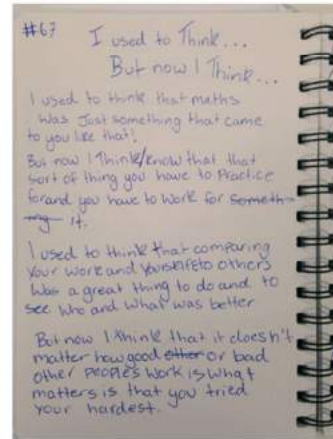 #67
I used to Think...
But now I Think...
I used to think that maths
was Just something that came
to you like that!
But now I Think/know that that
sort of thing you have to Practice
for and you have to work for someth-
ing it.
I used to think that comparing
Your work and yourself to others
was a great thing to do and to
see who and what was better
But now I think that it doesn't
matter how good other or bad
other people's work is what
matters is that you tried
your hardest.